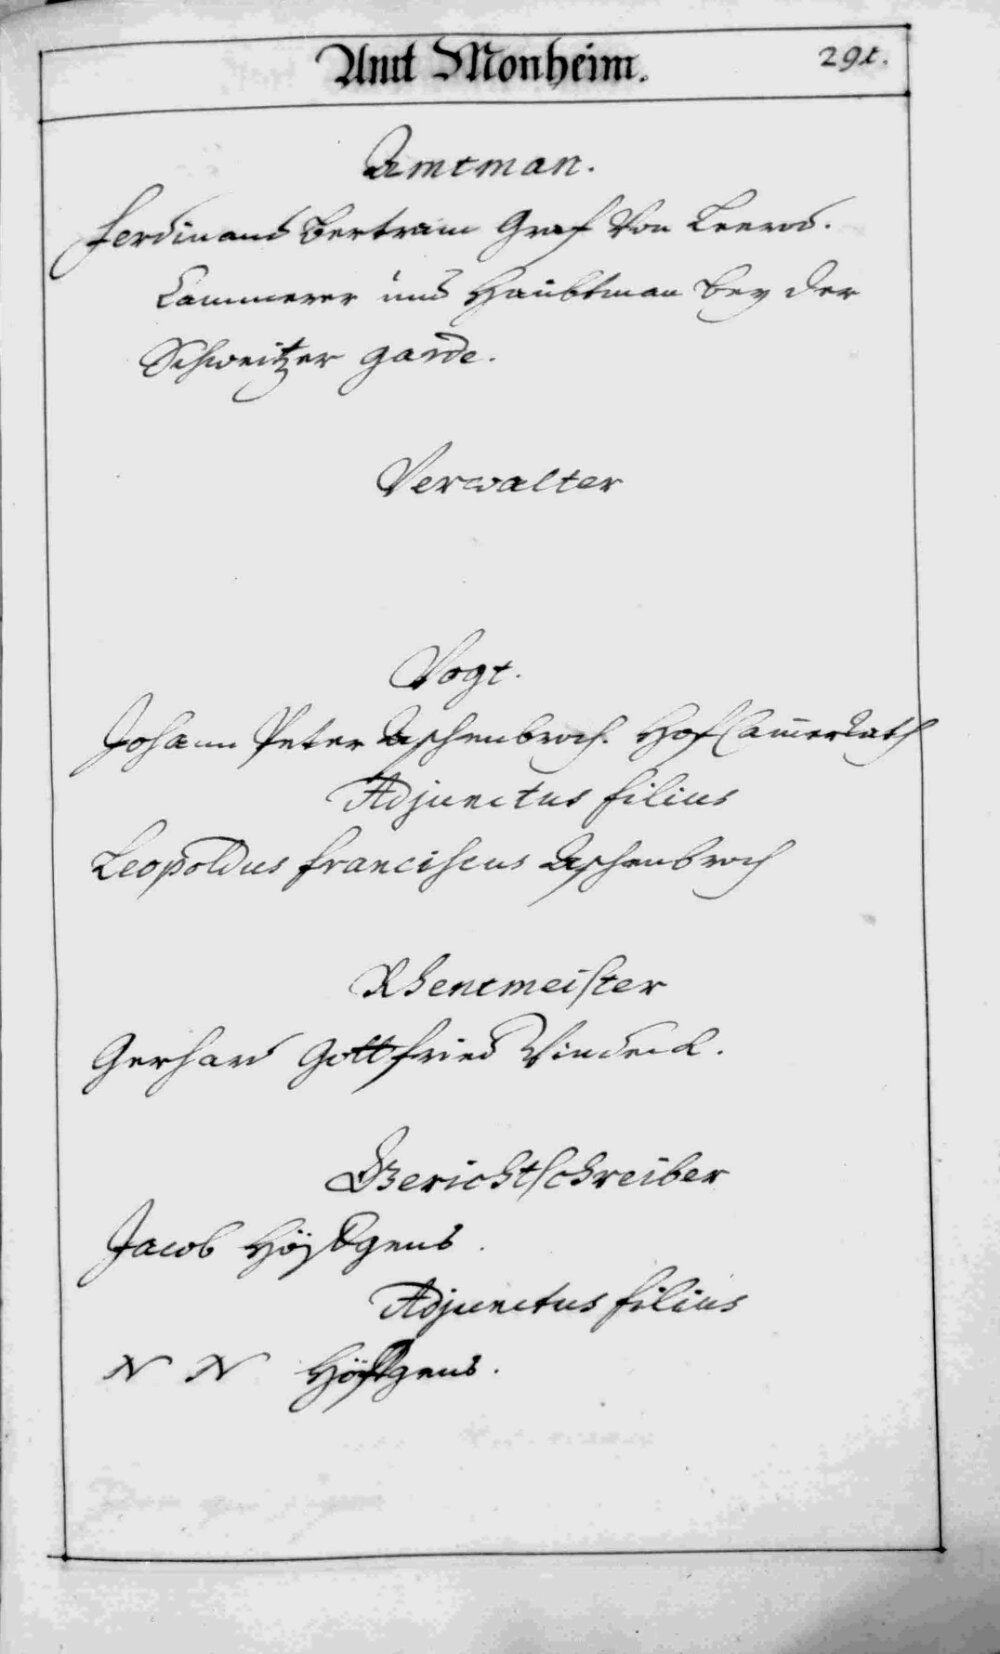 Amt Monheim.
291.
Amtman.
Ferdinand Bertram Graf Von Leerod.
Cammerer und Haubtman bey der
Schweitzer garde.
Verwalter
Vogt.
Johann Peter Aschenbroch. Hof Cam̅erRath
Adjunctus filius
Leopoldus franciscus Aschenbroch
Rhentmeister
Gerhard Gottfried Windeck.
Gerichtschreiber
Jacob
Adjunctus filius
N N